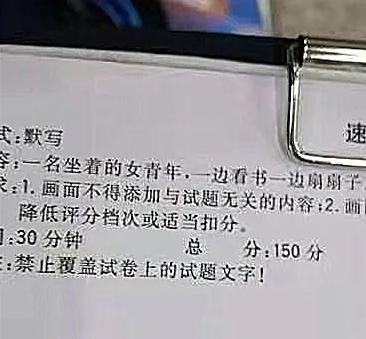 速
式:默写
容:一名坐着的女青年,一边看书一边扇扇子
求:1.画面不得添加与试题无关的内容;2.画
降低评分档次或适当扣分。
:30分钟 总 分:150分
:禁止覆盖试卷上的试题文字!